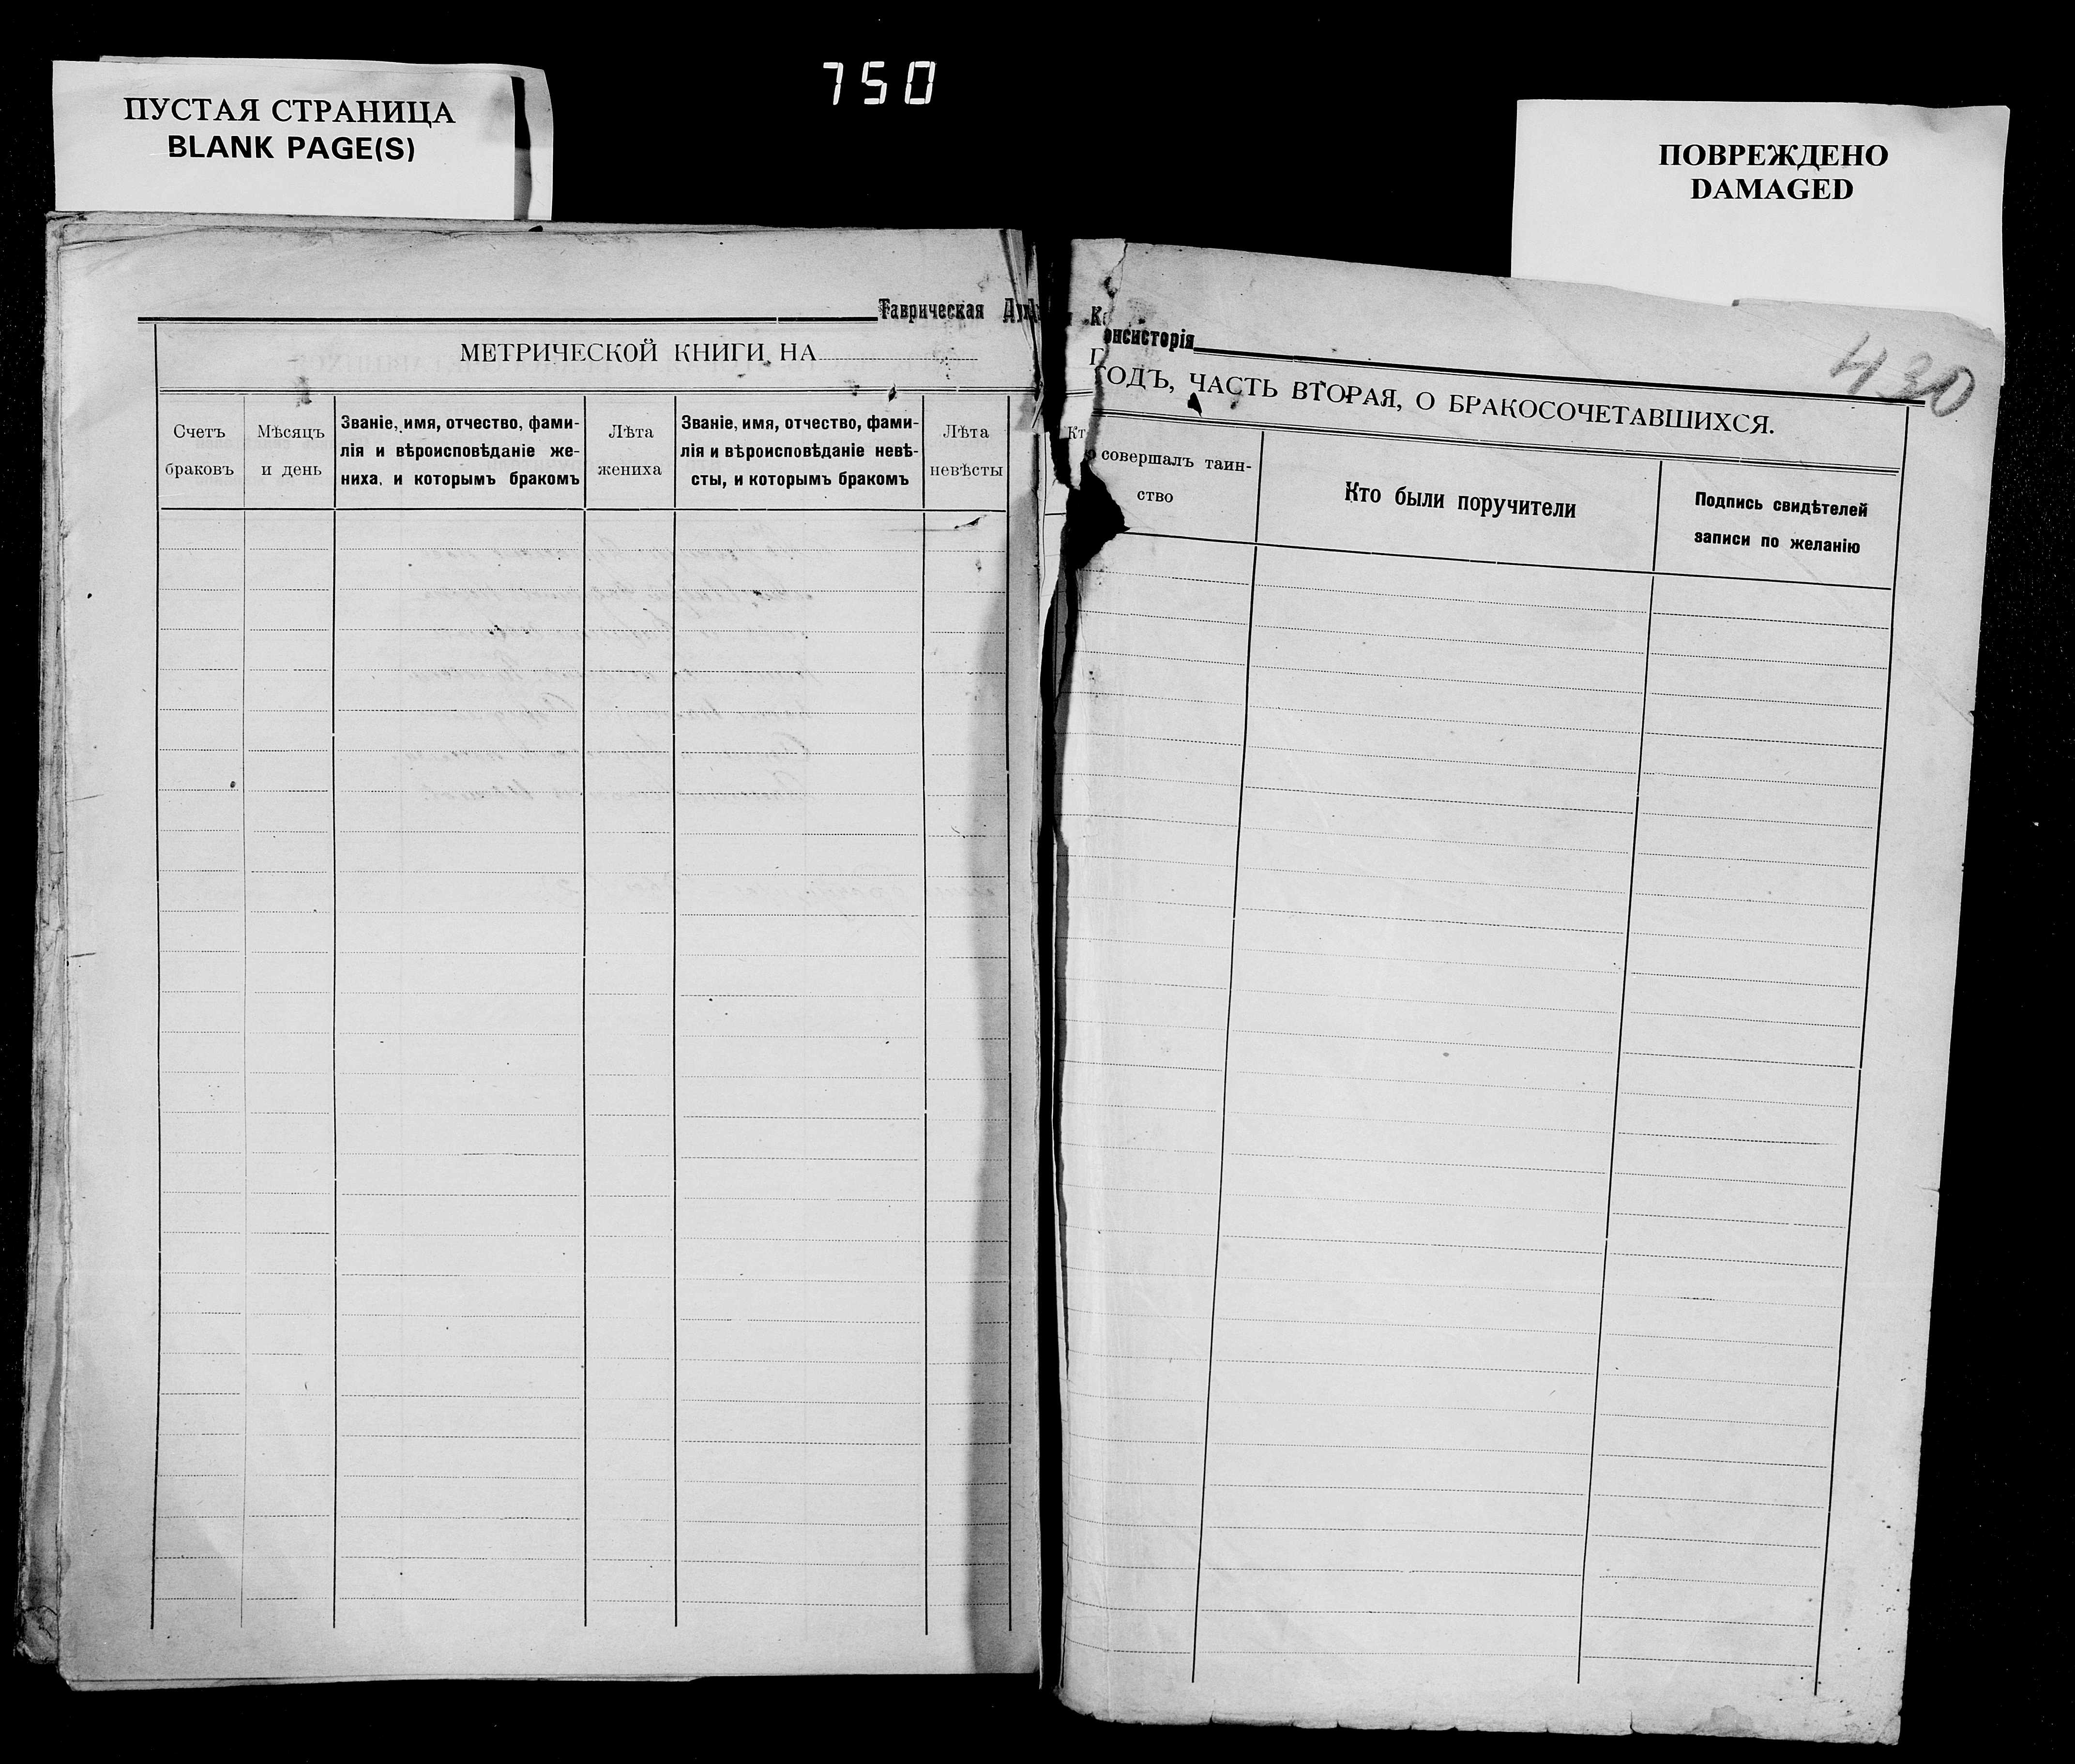 750
ПУСТАЯ СТРАНИЦА
BLANK PAGE(S)
ПОВРЕЖДЕНО
DAMAGED
430
Таврическая Дух
Консисторія
МЕТРИЧЕСКОЙ КНИГИ НА
ГОДЪ, ЧАСТЬ ВТОРАЯ, О БРАКОСОЧЕТАВШИХСЯ.
Счетъ
браковъ
Мѣсяцъ
и день
Званіе, имя, отчество, фами-
лія и вѣроисповѣданіе же-
ниха, и которымъ бракомъ
Лѣта
жениха
Званіе, имя, отчество, фами-
лія и вѣроисповѣданіе невѣ-
сты, и которымъ бракомъ
Лѣта
невѣсты
Кто совершалъ таин-
ство
Кто были поручители
Подпись свидѣтелей
записи по желанію